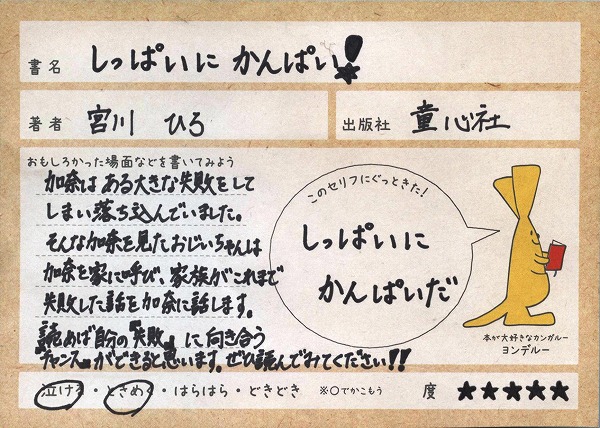 書名 しっぱいに かんぱい!
著者 宮川 ひろ
出版社 童心社
おもしろかった場面などを書いてみよう
加奈は ある大きな失敗をして
しまい落ち込んでいました。
そんな加奈を見たおじいちゃんは
加奈を家に呼び、家族がこれまで
失敗した話を加奈に話します。
読めば自分の『失敗』に向き合う
『チャンス』ができると思います。ぜひ読んでみてください!!
このセリフにぐっときた!
しっぱいに
かんぱいだ
本が大好きなカンガルー
ヨンデルー
泣ける・ときめく・はらはら・どきどき ※○でかこもう 度 ★★★★★